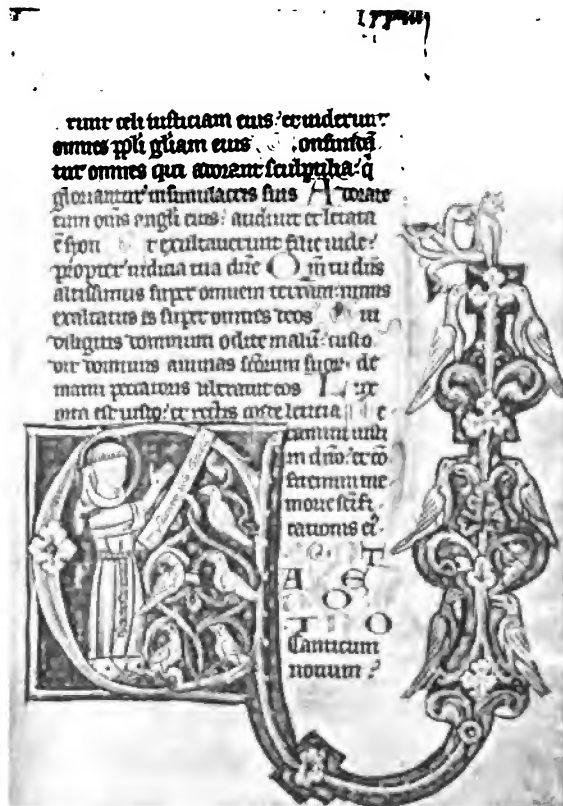 runt celi iusticiam eius ⁊ eviderunt
omnes ppli gliam eius onfundā
tur omnes qui adorant sculptilia: q̄
gloriantur in simulacris suis Adorate
eum om̄s angli eius: audiuit et letata
ē syon t exultauerunt filie iude:
propter iudicia tua dn̄e Qm̄ tu dn̄s
altissimus super omnem terram: nimis
exaltatus es super omnes deos ui
diligitis dominum odite malū: custo
dit dominus animas scōrum suor. de
manu peccatoris liberauit eos Lux
orta est iusto: et rectis corde leticia e
tamini iusti
in dn̄o: et cō
fitemini me
morie scīfi
cationis ei.
T
A E
O
T O
Canticum
nouum: